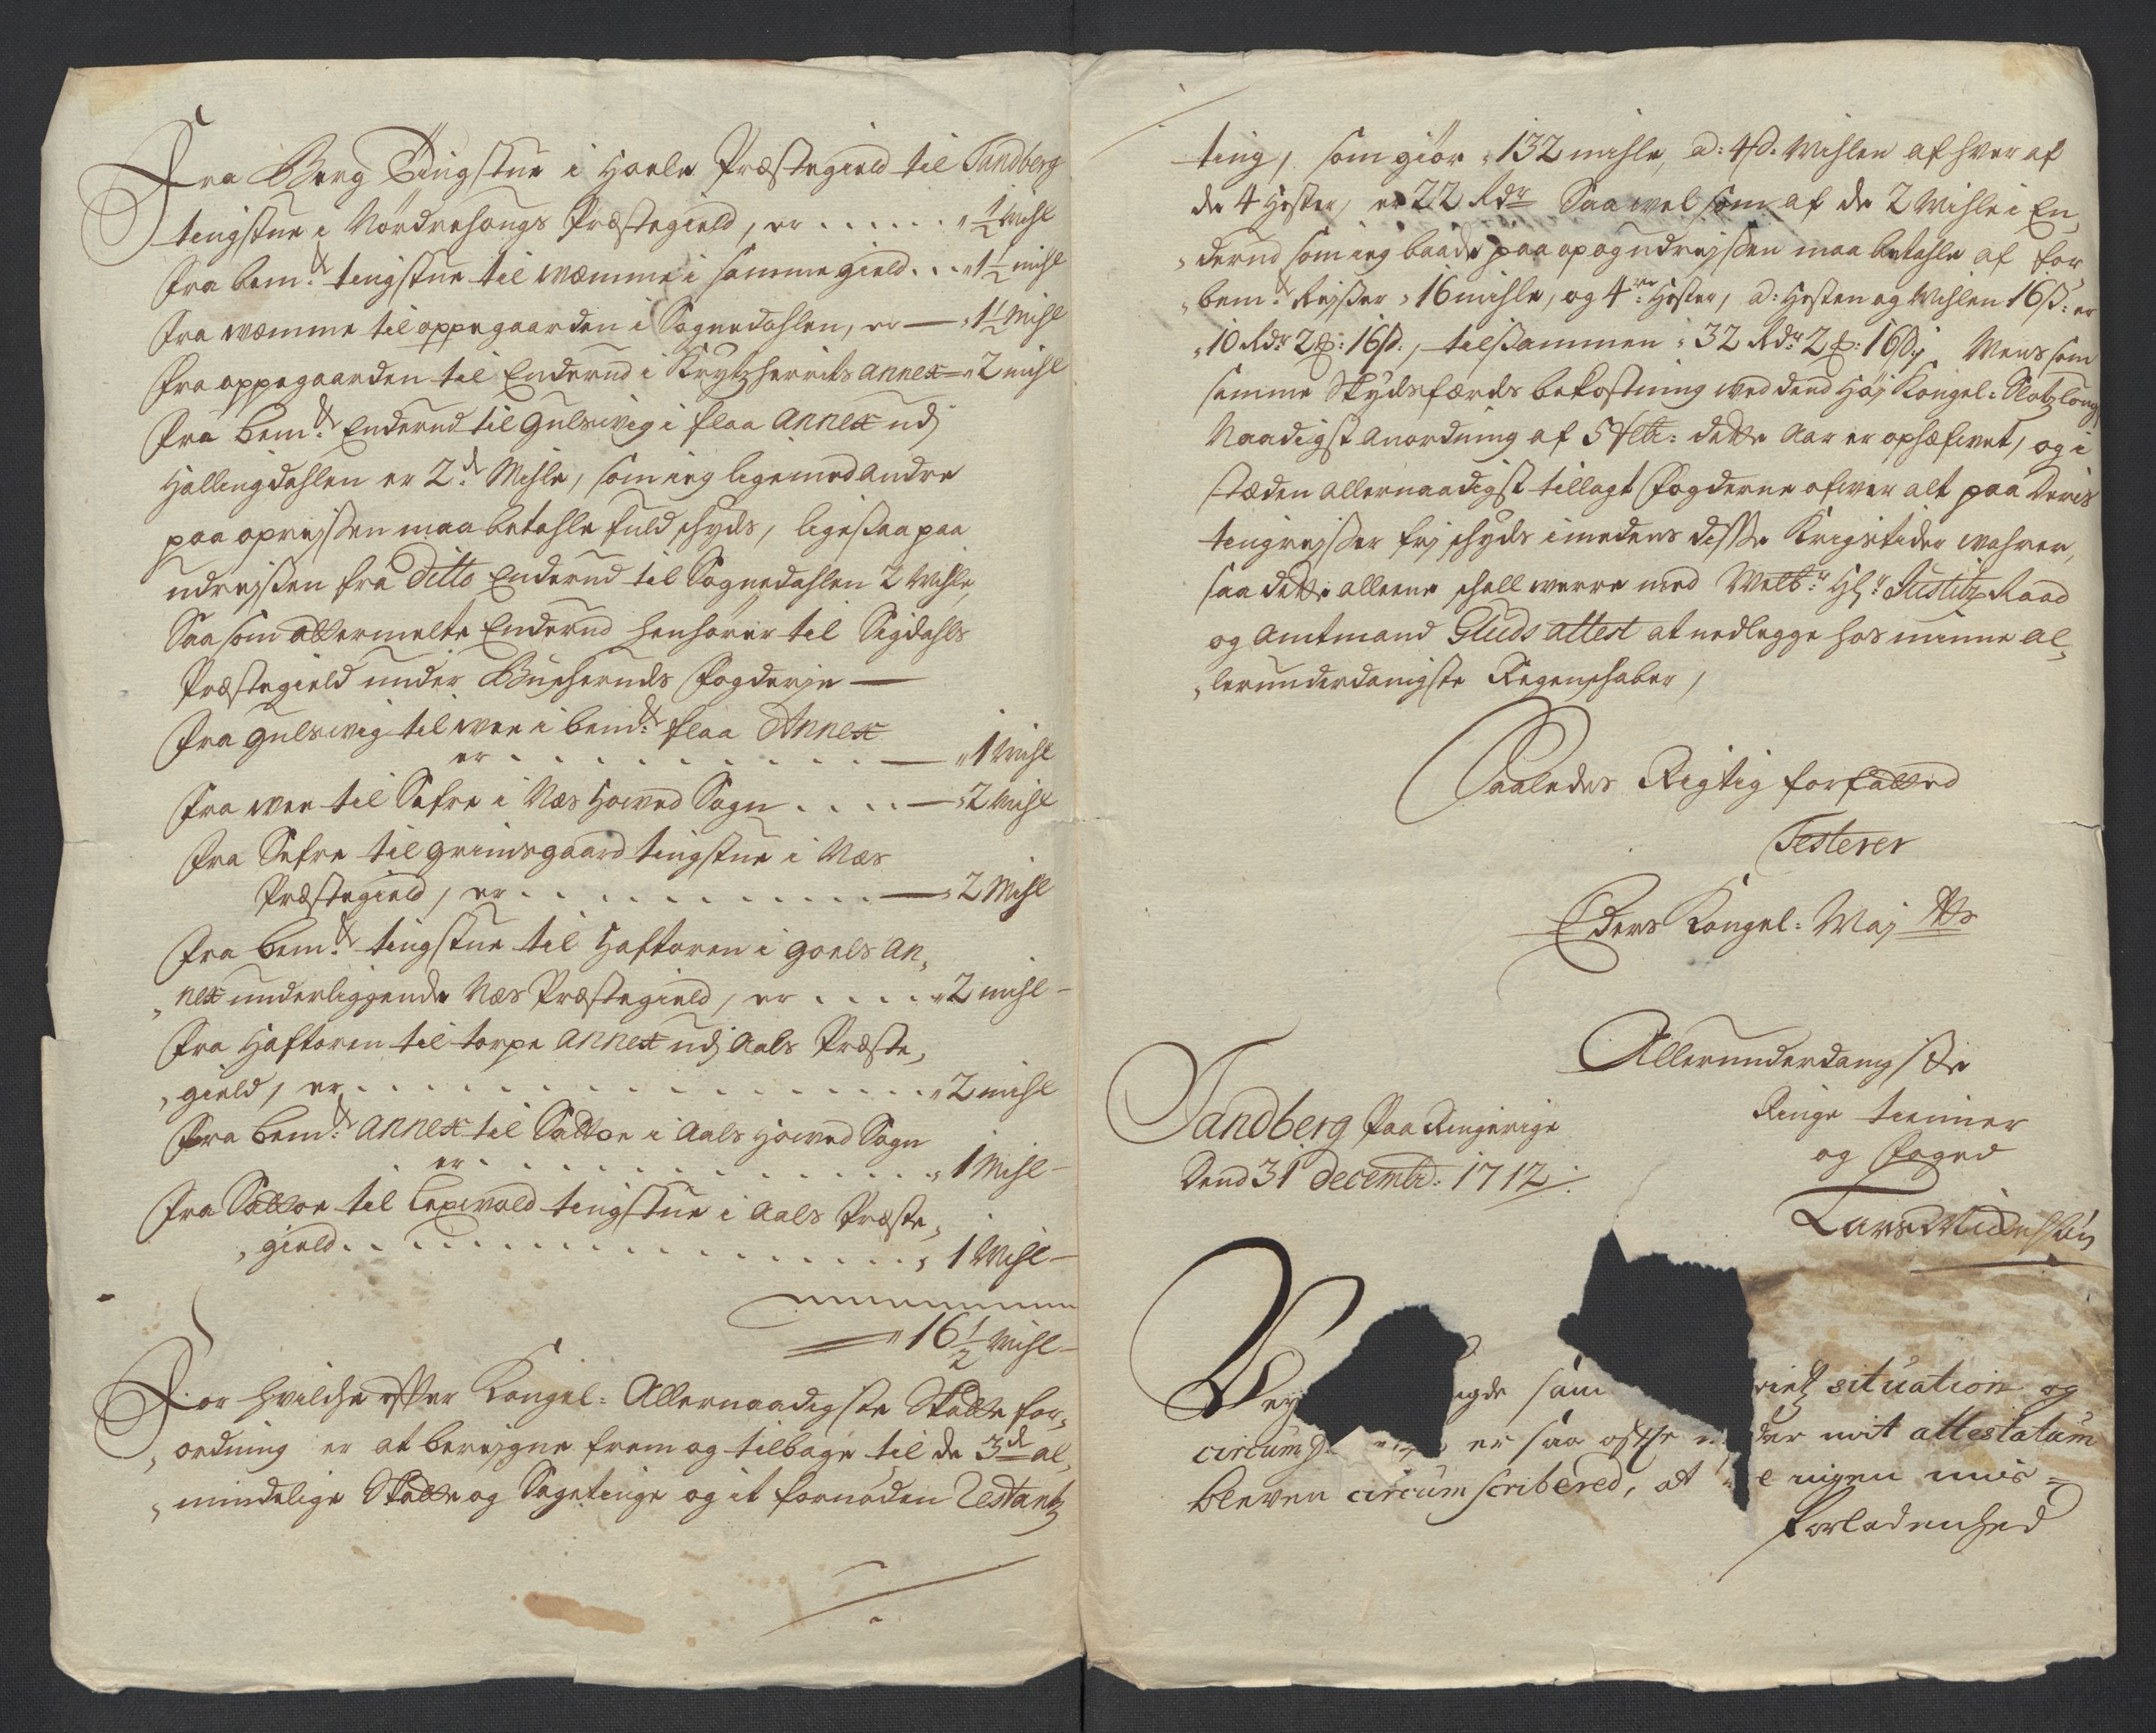 Fra Berg Tingstue i Hoele Præstegield til Tandberg
tingstue i Nordrehougs Præstegield, er . . . . . " ½ Mihl
Fra bem:te tingstue til wæmme i samme gield . . . " 1½ mihl
Fra wæmme til oppegaarden i Sognedahlen, er — " 1½ Mihl
Fra oppegaarden til Enderud i Krytzherrits annex — " 2 mihl
Fra bem:te Enderud til Gulsvig i flaa Annex udj
Hallingdahlen er 2:de Mihle, som ieg lige med andre
paa oprejsen maa betahle fuld schyds, ligesaa paa
udrejsen fra ditto Enderud til Sognedahlen 2 Mihle,
Saasom attermelte Enderud henhører til Sigdahls
Præstegield under Buscheruds Fogderje —
Fra Gulsvig til wee i bem:te flaa Annex
er . . . . . . . . . . — " 1 Mihl
Fra wee til Sefre i Næs Howed Sogn . . . . — " 2 Mihl
Fra Sefre til Grimsgaard tingstue i Næs
Præstegield, er . . . . . . . . . . — " 2 Mihl
Fra bem:te tingstue til Haftoren i Goels An,,
,,nex underliggende Næs Præstegield, er . . . . " 2 mihl —
Fra Haftoren til torpe Annex udj Aals Præste,,
,,gield, er . . . . . . . . . . . . . . . " 2 mihl
Fra bem:te Annex til Sattoe i Aals Howed Sogn
er . . . . . . . . . . . . . " 1 Mihl —
Fra Sattoe til Lexwold tingstue i Aals Præste,,
,,gield . . . . . . . . . . . . . . . . " 1 Mihl —
" 16½ Mihl —
For hvilche effter Kongel: Allernaadigste Skatte for,,
,,ordning er at beregne frem og tilbage til de 3de al,,
,,mindelige Skatte og Sagetinge og it fornøden Restantz
ting, som giør " 132 mihle, a: 4 s: Mihlen af hver af
de 4 Hester, er 22 Rdr Saa wel som af de 2 Mihle i En,,
,,derud som ieg baade paa op og udrejsen maa betahle af for
,,bem:te Rejser " 16 mihle, og 4re Hester, a: Hesten og Mihlen 16 s: er
" 10 Rdr 2 £: 16 s:, tilsammen " 32 Rdr 2 £: 16 s:, Mens som
samme Skydsfærds bekostning wed dend Høj Kongel: Slotzlougs
Naadigst Anordning af 5 Febr: dette Aar er ophæfwet, og i
stæden allernaadigst tillagt Fogderne ofwer alt paa deris
tingrejser frj schyds imedens disse Krigstider wahrer,
saa dette alleene schall werre med Welb:r Hr: Justitz Raad
og Amtmand Gluds attest at nedlegge hos minne Al,,
,,lerunderdanigste Regenschaber,
Saaledes Rigtig forfatted
Testerer
Eders Kongel: Maj:tts
Allerunderdanigste
Ringe tienner
og Foged
Tandberg Paa Ringerige
Dend 31 Decembr: 1712
Lars
situation og
circum er saa ofte under mit attestatum
bleven circumscribered, at ingen mis=
forladenhed